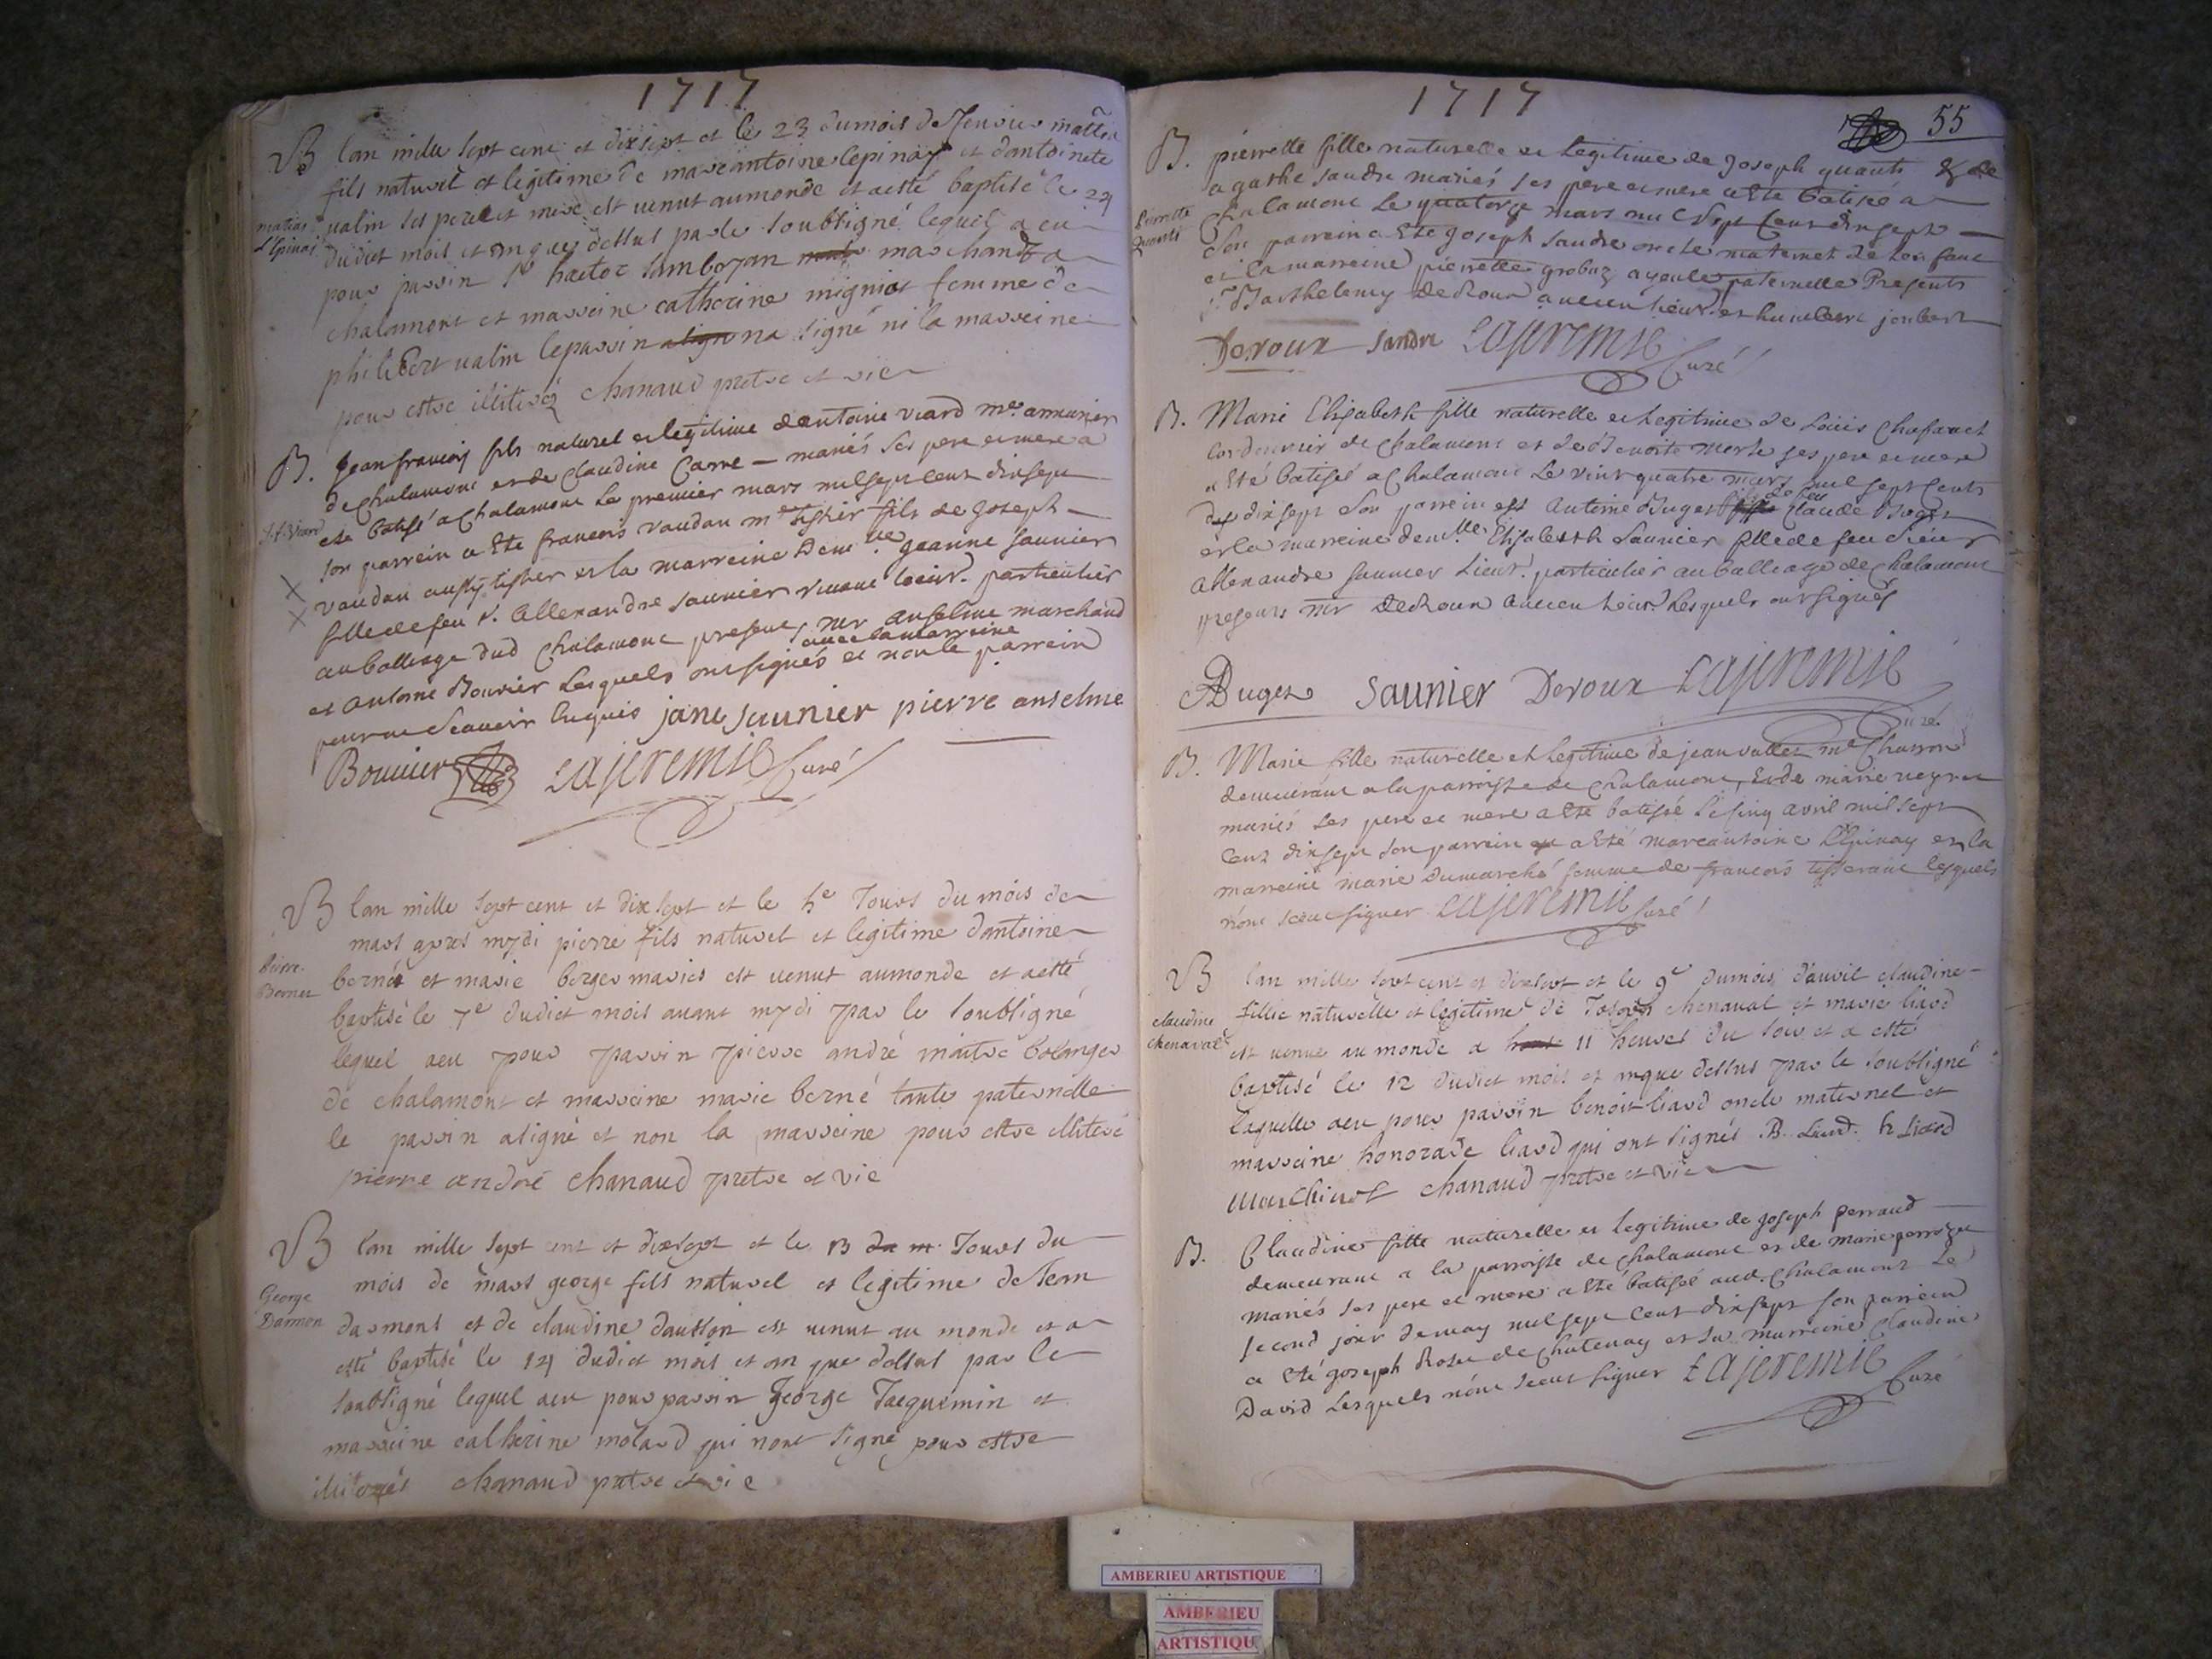 1717
B lan mille sept cent et dixsept et le 23 du mois de
fils naturel et legitime de marcantoine lepinay et dantoinete
valin ses pere et mere est venut aumonde et aesté baptisé le 24
matias
l'Epinai
dudict mois et an que dessus par le soubsigné lequel a eu
pour parrin sr hactor marchand a
chalamont et marreine catherine migniot femme de
philibert valin le parrin na signé ni la marreine
pour estre illiteréz chanaud pretre et vic
B. Jean francois fils naturel et legitime dantoine viard me armurier
de chalamont et de claudine Carre — mariés ses pere et mere a
J. f. Viard
ete batisé a chalamont le premier mars mil sept cent dixsept
son parrein a ete francois vaudan me tissier fils de Joseph —
vaudan aussy tissier et la marreine Demlle Jeanne saunier
fille de feu s. allexandre saunier vivant lieut. particulier
au balliage dud chalamont presents mr anselme marchand
avec la marreine
et antoine Bouvier lesquels ont signés et non le parrein
pour ne scavoir enquis jane saunier pierre anselme
Bouvier Lajeremie Curé
B lan mille sept cent et dix sept et le 5e Jours du mois de
mars apres mydi pierre fils naturel et legitime dantoine
Pierre
Bernet
berné et marie berger maries est venut aumonde et aesté
baptisé le 7e dudict mois avant mydi par le soubsigné
lequel aeu pour parrin pierre andré maitre bolanger
de chalamont et marreine marie berné tante paternelle
le parrin asigné et non la marreine pour estre illiteré
pierre andré chanaud pretre et vic
B lan mille sept cent et dixsept et le 13 Jours du
mois de mars george fils naturel et legitime de Jean
George
Darmon
darmont et de claudine dautson est venut au monde et a
esté baptisé le 14 dudict mois et an que dessus par le
soubsigné lequel aeu pour parrin George Jacquemin et
marreine catherine molard qui nont signé pour estre
illiterés chanaud pretre et vic
1717
55
B. pierrette fille naturelle et legitime de Joseph quanti & de
agathe sandre mariés ses pere et mere a ete batisée a
Pierrette
Quanti
Chalamont le quatorze mars mil sept cent dixsept —
son parrein a ete Joseph sandre oncle maternel de lenfant
et la marreine pierrette grobuz ayeule paternelle Presents
sr Barthelemy Deroux ancien lieut. et humbert joubert
Deroux sandre Lajeremie Curé
B. Marie Elisabeth fille naturelle et legitime de Louis Chafanet
Cordonnier de chalamont et de Benoite morte ses pere et mere
a eté batisée a chalamont le vint quatre mars mil sept cents
dixsept son parrein est Antoine Buget de feu Claude Buget
et la marreine demlle Elisabeth saunier fille de feu sieur
allexandre saunier Lieut. particulier au balliage de chalamont
presents mr Deroux ancien Lieut. lesquels ont signés
ABuget saunier Deroux Lajeremie
Curé
B. Marie fille naturelle et legitime de jean vallet me Charron
demeurant a la parroisse de chalamont, et de marie neyret
mariés ses pere et mere a ete batisée le cinq avril mil sept
cent dixsept son parrein a eté marcantoine lepinay et la
marreine marie dumarché femme de francois tisserant lesquels
n'ont sceu signer Lajeremie Curé
B lan mille sept cent et dixsept et le 9e dumois dauvil claudine
fillie naturelle et legitime de Joseph chenaval et marie liard
claudine
chenaval
est venue au monde a 11 heures du soir et a esté
baptisé le 12 dudict mois et anque dessus par le soubsigné
laquelle aeu pour parrin benoit liard oncle maternel et
marreine honorade liard qui ont signés B. Liard h Liard
chanaud pretre et vic
B. Claudine fille naturelle et legitime de Joseph perraud
demeurant a la parroisse de chalamont et de marie
mariés ses pere et mere a eté batisée aud. chalamont le
second jour de may mil sept cent dixsept son parrein
a eté Joseph Roset de chatenay et sa marreine Claudine
David lesquels n'ont sceut signer Lajeremie Curé
AMBERIEU ARTISTIQUE
AMBERIEU
ARTISTIQU